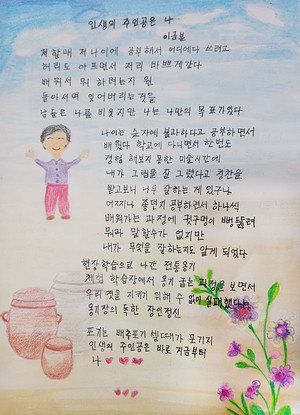 인생의 주인공은 나
이금분
저 할매 저 나이에 공부해서 어디에다 쓰려고
허리도 아프면서 저리 바쁘게 갈다
배워서 뭐 하려는지 원
돌아서며 잊어버리는 것을
남들은 나를 비웃지만 나는 나만의 목표가 있다
나이는 숫자에 불과하다고 공부하면서
배웠다 학교에 다니면서 한번도
경험 해보지 못한 미술시간에
내가 그림을 잘 그렸다고 칭찬을
받고보니 나도 잘하는 게 있구나
어찌나 좋던지 공부하면서 하나씩
배워가는 과정에 귀구멍이 뻥 뚫려
뭐라 말할수가 없지만
내가 무엇을 잘하는지도 알게 되었다
현장학습으로 나간 전통옹기
체험 학습장에서 옹기 굽는 과정을 보면서
우리 것을 지키기 위해 수 없이 실패했다는
옹기장의 독한 장인정신
포기는 배추포기 셀때나 포기지
인생의 주인공은 바로 지금부터
나